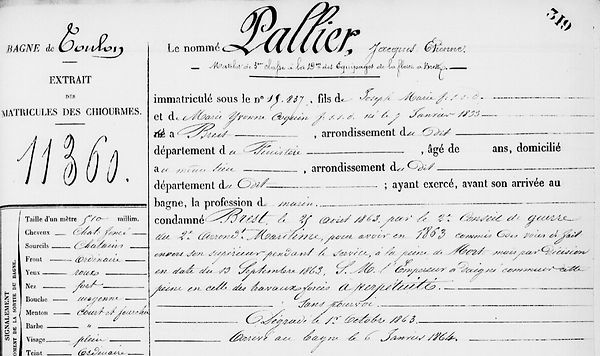 319
BAGNE de Toulon
EXTRAIT
DES
MATRICULES DES CHIOURMES.
11360.
Le nommé Pallier, Jacques Etienne
Matelot de 3me classe à la des Equipages de la flotte à Brest
immatriculé sous le n° 19.937, fils de Joseph Marie
et de Marie Yvonne né le 7 Janvier 1833
né à Brest, arrondissement du dit
département du Finistère, âgé de ans, domicilié
au même lieu, arrondissement du dit
département du dit; ayant exercé, avant son arrivée au
bagne, la profession de marin.
condamné Brest le 25 Août 1863, par le 2e Conseil de guerre
du 2e Arrondt Maritime, pour avoir en 1863 commis des voies de fait
envers son supérieur pendant le service, à la peine de Mort mais par décision
en date du 13 Septembre 1863, S. M. l'Empereur a daigné commuer cette
peine en celle des travaux forcés à perpétuité
Sans pourvoi
Dégradé le 1er Octobre 1863
Arrivé au bagne le 6 Janvier 1864.
SIGNALEMENT
AU MOMENT DE LA SORTIE DU BAGNE.
Taille d'un mètre 510 millim.
Cheveux chat. foncé
Sourcils chatains
Front ordinaire
Yeux roux
Nez fort
Bouche moyenne
Menton court et
Barbe "
Visage plein
Teint ordinaire